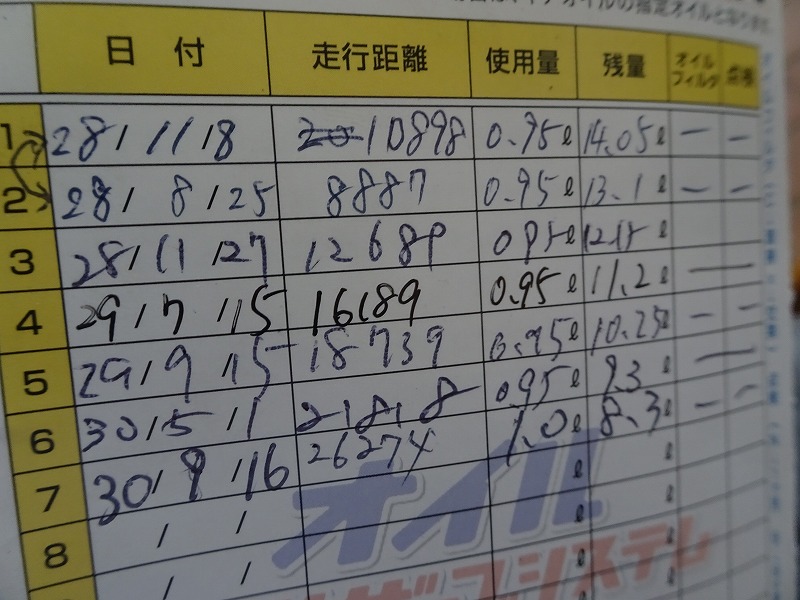 オイルの指定オイルとなります。
日付 走行距離 使用量 残量 オイルフィルタ 点検
1 28/11/8 10898 0.95ℓ 14.05ℓ — —
2 28/8/25 8887 0.95ℓ 13.1ℓ — —
3 28/11/27 12689 0.95ℓ 12.15ℓ
4 29/7/15 16189 0.95ℓ 11.2ℓ —
5 29/9/15 18739 0.95ℓ 10.25ℓ — —
6 30/5/1 21818 0.95ℓ 9.3ℓ —
7 30/9/16 26274 1.0ℓ 8.3ℓ — —
8 / / ℓ ℓ
/ / ℓ ℓ
オイル
システム